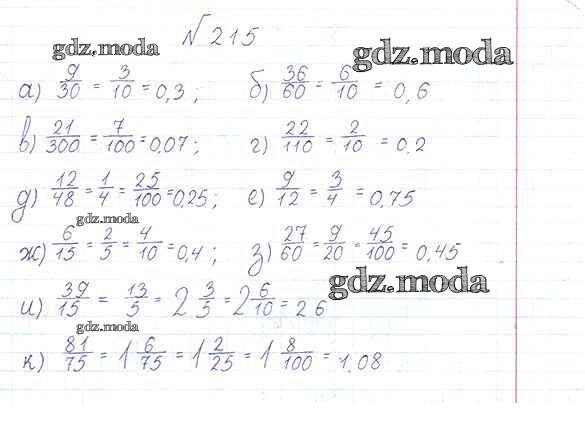 № 215
gdz.moda
gdz.moda
а) 9/30 = 3/10 = 0,3 ; б) 36/60 = 6/10 = 0,6
в) 21/300 = 7/100 = 0,07 ; г) 22/110 = 2/10 = 0,2
д) 12/48 = 1/4 = 25/100 = 0,25 ; е) 9/12 = 3/4 = 0,75
gdz.moda
ж) 6/15 = 2/5 = 4/10 = 0,4 ; з) 27/60 = 9/20 = 45/100 = 0,45
gdz.moda
и) 39/15 = 13/5 = 2 3/5 = 2 6/10 = 2 6
gdz.moda
к) 81/75 = 1 6/75 = 1 2/25 = 1 8/100 = 1,08